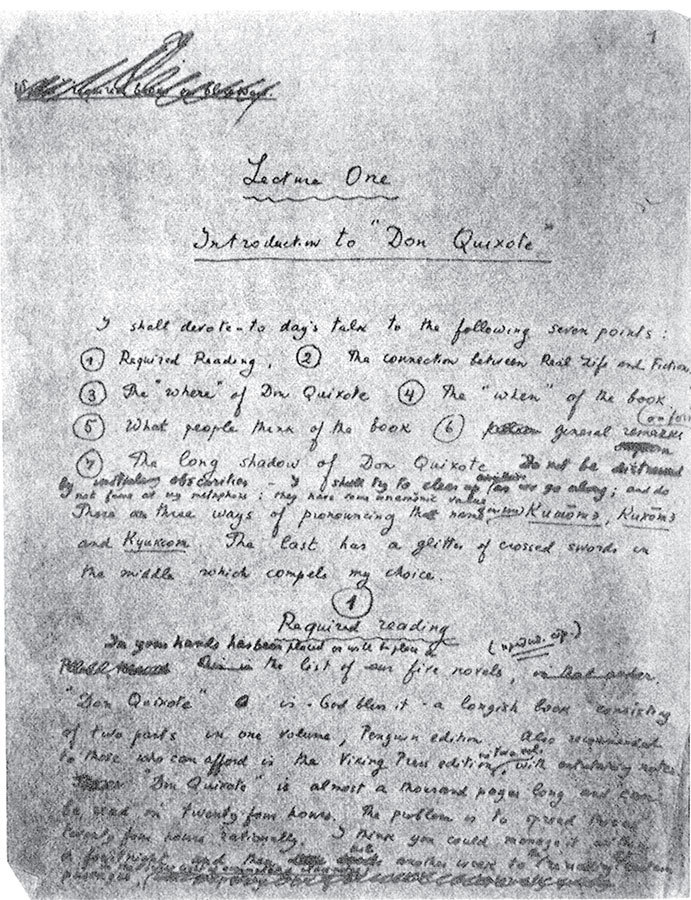 1
required
Lecture One
Introduction to "Don Quixote"
I shall devote to day's talk to the following seven points:
① Required Reading, ② The connection between Real Life and Fiction,
③ The "where" of Don Quixote ④ The "when" of the book
(on form
⑤ What people think of the book ⑥ general remarks
⑦ The long shadow of Don Quixote. Do not be distressed
by obscurities - I shall try to clear up as we go along; and do
not fume at my metaphors: they have some mnemonic value
There are three ways of pronouncing that name
and The last has a glitter of crossed swords in
the middle which compels my choice.
①
Required reading
In your hands has been placed or will be placed
the list of our five novels,
"Don Quixote" is - God bless it - a longish book consisting
of two parts in one volume, Penguin edition. Also recommended
in two vols.
to those who can afford is the Viking Press edition, with notes.
"Don Quixote" is almost a thousand pages long and can
be read in twenty four hours. The problem is to spread these
twenty four hours rationally. I think you could manage it within
a fortnight, and then another week to certain
passages,